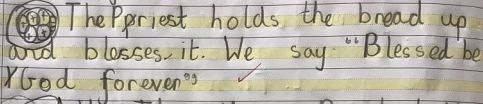 The Ppriest holds the bread up
and blesses it. We say "Blessed be
God forever"